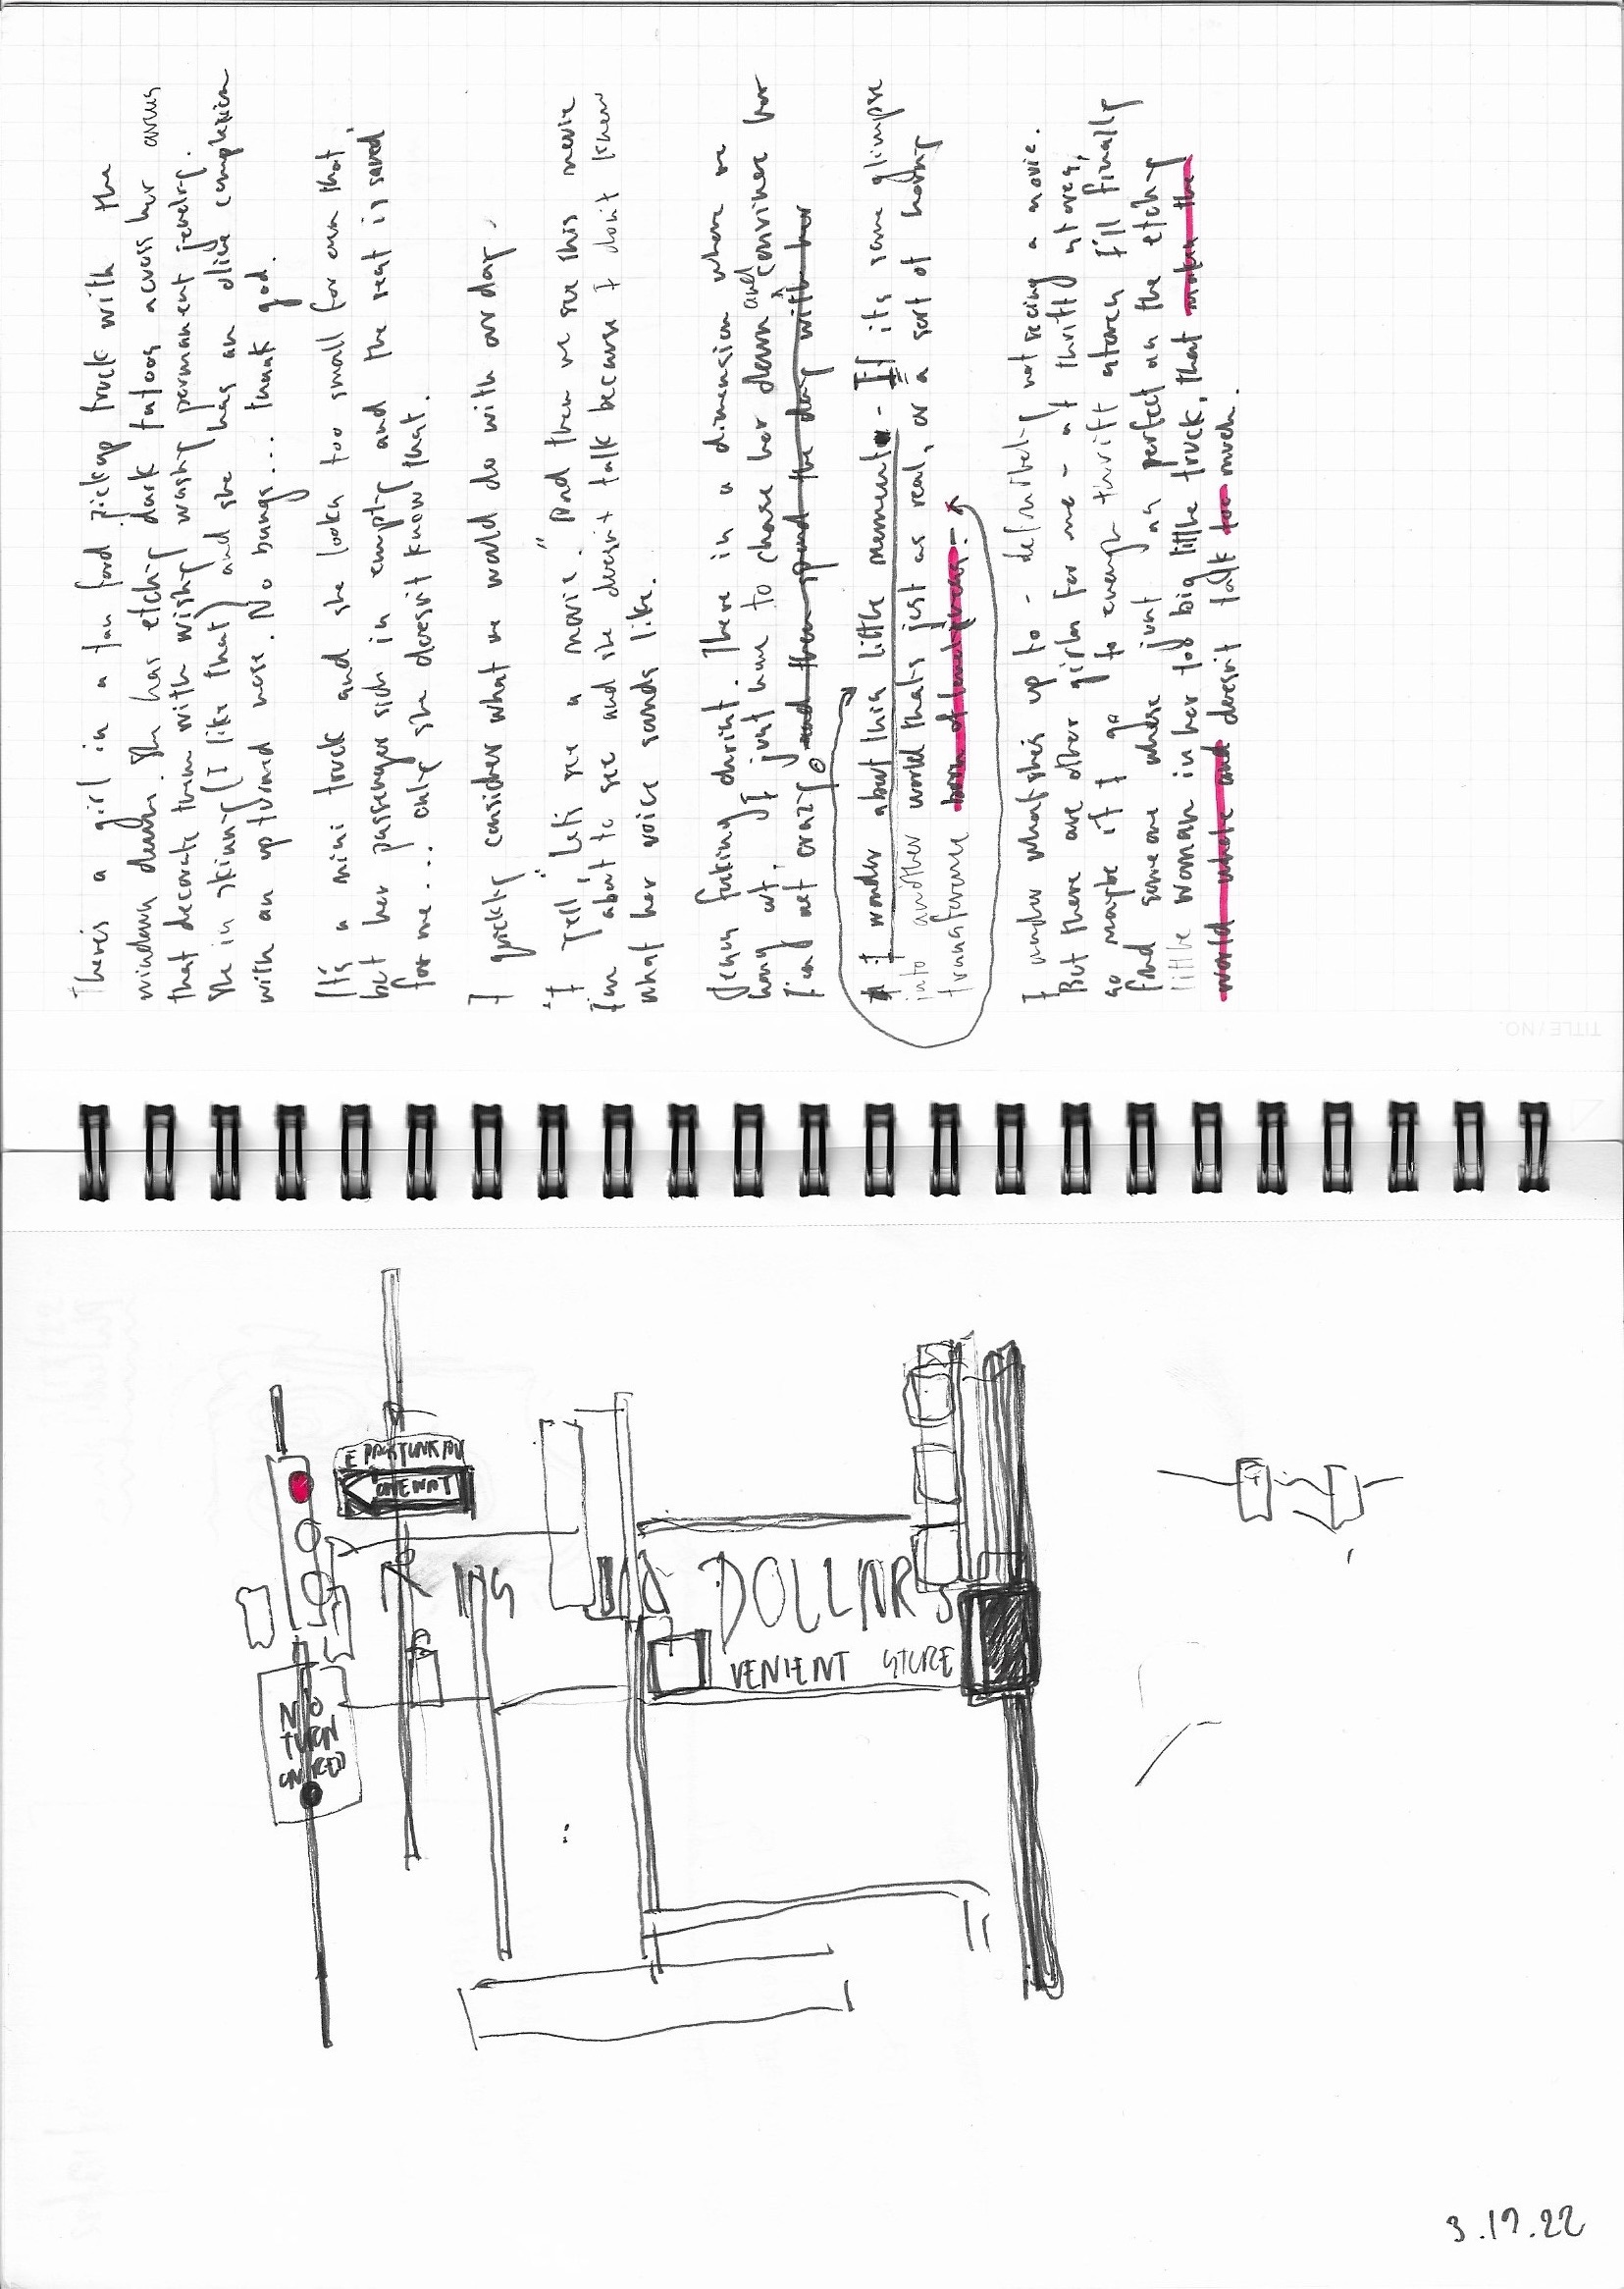 There's a girl in a tan ford pickup truck with the
windows down. She has etchy dark tatoos across her arms
that decorate them with wishy washy permanent jewelry.
She is skinny (I like that) and she has an olive complexion
with an upturned nose. No bangs... thank god.
It's a mini truck and she looks too small for even that,
but her passenger side is empty and the seat is saved
for me... only she doesn't know that.
I quickly consider what we would do with our day.
"I yell, "Lets see a movie." And then we see this movie
I'm about to see and she doesn't talk because I don't know
what her voice sounds like.
Jesus fucking christ. There is a dimension where we
hang out. I just have to chase her down and convince her
I'm not crazy. and then spend the day with her
I wonder about this little moment - If its some glimpse
into another world thats just as real, or a sort of holy
transference
I wonder what she's up to - definitely not seeing a movie.
But there are other girls for me - at thrift stores,
so maybe if I go to enough thrift stores I'll finally
find someone whose just as perfect as the etchy
little woman in her too big little truck, that makes the
world whole and doesn't talk too much.
TITLE/NO.
NO
TURN
ON RED
ONE WAY
DOLLAR S
VENIENT STORE
3.19.22